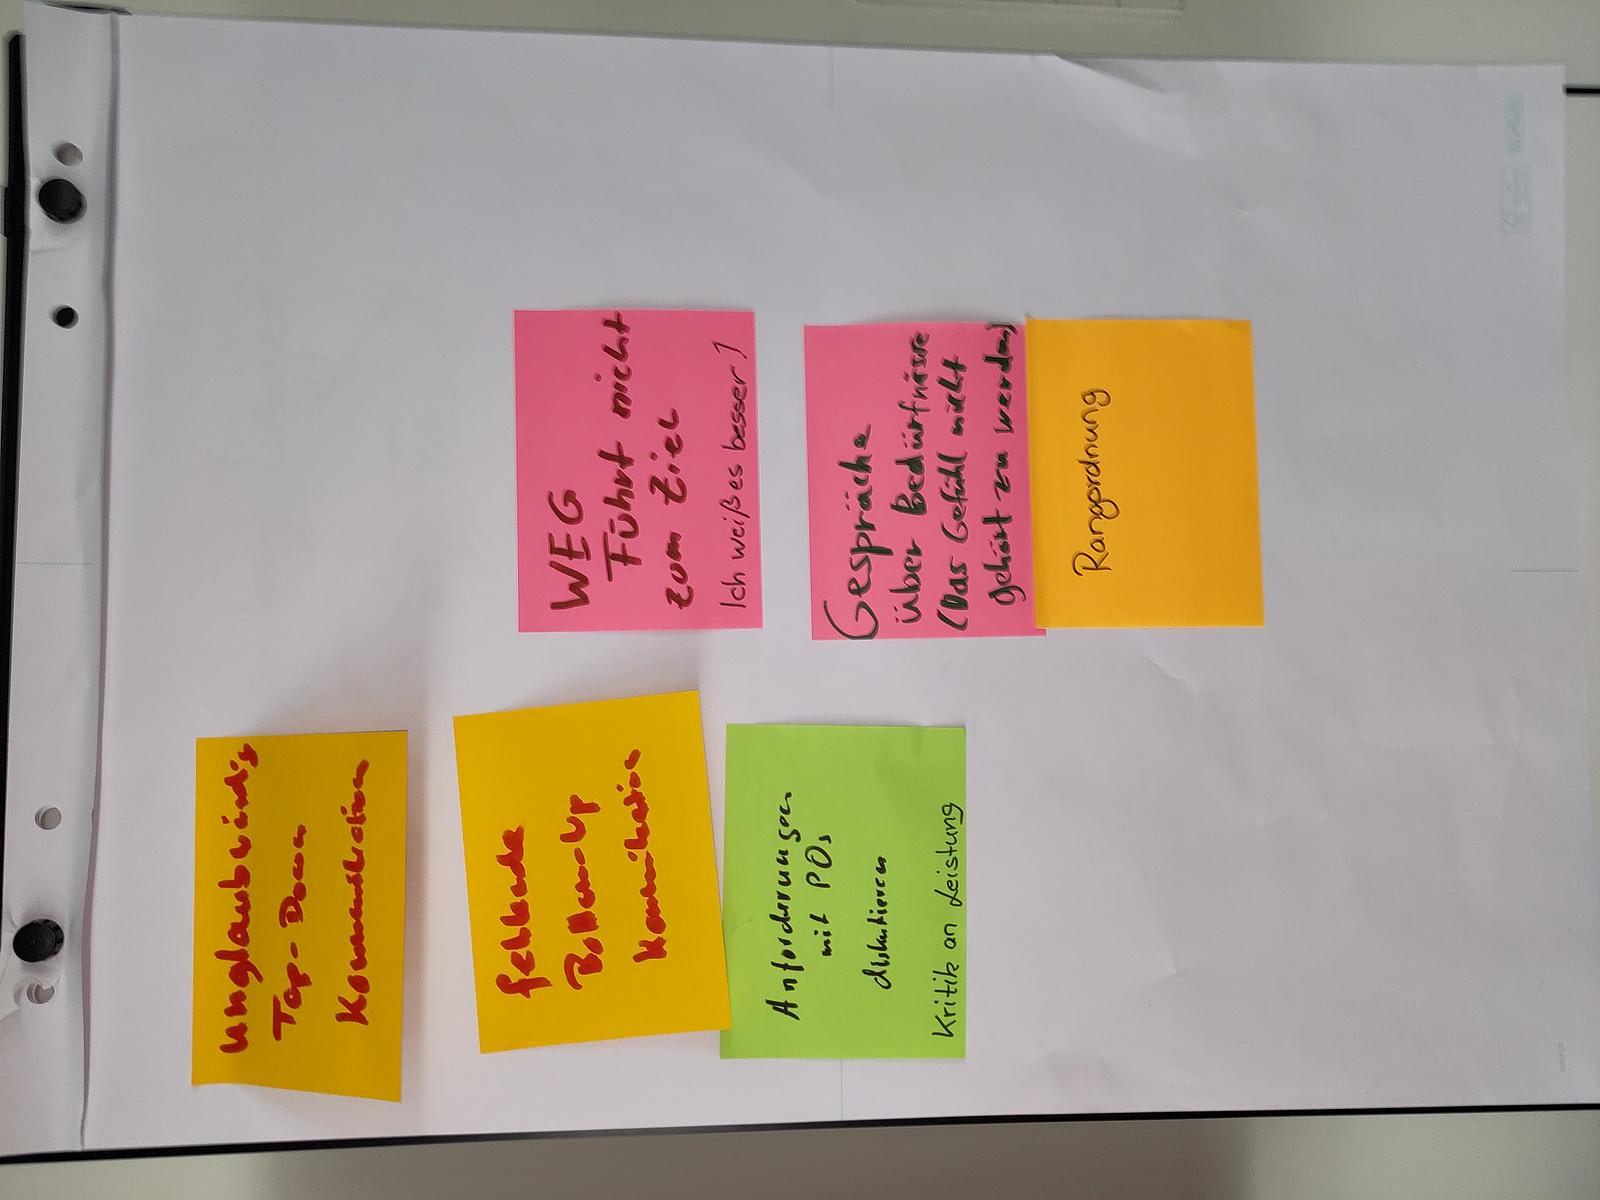 unglaubwürdig
Top-Down
Kommunikation
fehlende
Bottom-Up
Kommunikation
Anforderungen
mit POs
diskutieren
Kritik an Leistung
WEG
Führt nicht
zum Ziel
Ich weiß es besser!
Gespräche
über Bedürfnisse
(Das Gefühl nicht
gehört zu werden)
Rangordnung